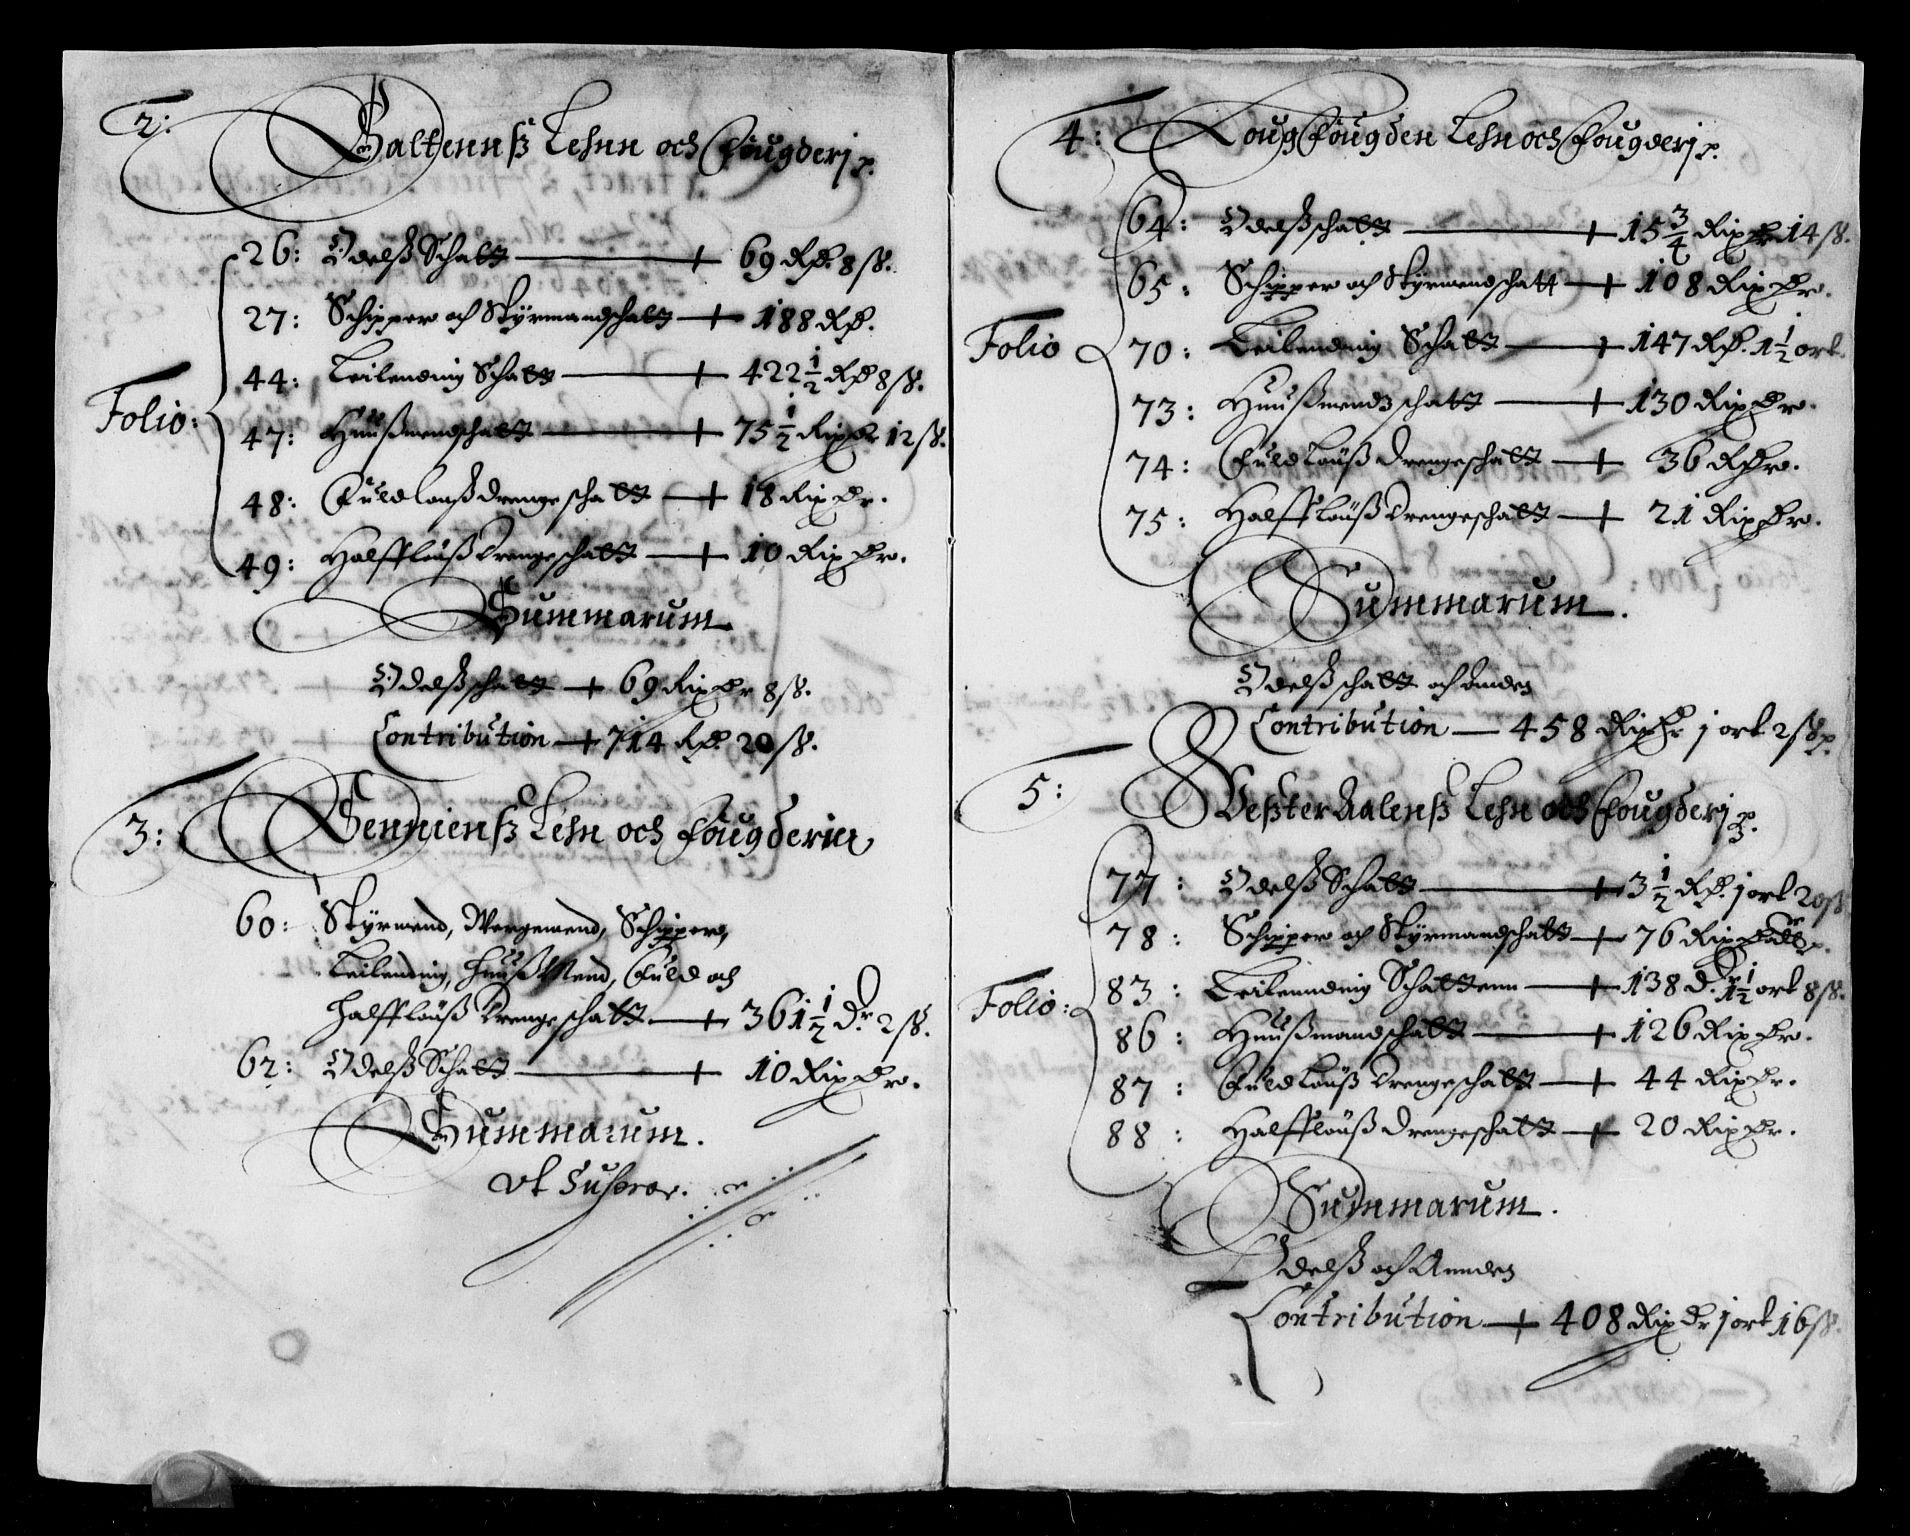 2: Saltennß Lehnn och Fougderj p.
Folio:
26: Odelß Schatt + 69 Rd. 8 ß.
27: Schipper och Styrmandschatt + 188 Rd.
44: Leilending Schatt + 422 1/2 Rd 8 ß.
47: Huußmendschatt + 75 1/2 Rixdr 12 ß.
48: Fuld louß drengeschatt + 18 Rixdr.
49: Halffløuß drengeschatt + 10 Rixdr.
Summarum
Odelßschatt + 69 Rixdr 8 ß.
Contribution + 714 Rd. 20 ß.
3: Senniens Lehn och Fougderier
60: Styrmend, Wergemend, Schipper,
Leilending, Huuß Mend, Fuld och
halffløuß drengeschatt + 361 1/2 dr. 2 ß.
62: Odelß Schatt + 10 Rixdr.
Summarum.
Vt Suhpra.
4: Lougfougden Lehn och Fougderj p.
Folio
64: Odelßschatt + 15 3/4 Rixdr 14 ß.
65: Schipper och Styrmendschatt + 108 Rixdr.
70: Leilending Schatt + 147 Rd. 1 1/2 ort.
73: Huußmendschatt + 130 Rixdr.
74: Fuld Løuß drengeschatt + 36 Rdr.
75: Halffløuß drengeschatt + 21 Rixdr.
Summarum.
Odelßschatt och Anden
Contribution — 458 Rixdr 1 ort 2 ß p.
5: Weßteraalenß Lehn och Fougderj p.
Folio:
77: Odelß Schatt + 3 1/2 Rd. 1 ort 20 ß
78: Schipper och Styrmandschatt + 76 Rixdr.
83: Leilennding Schattenn + 138 dr. 1 1/2 ort 8 ß.
86: Huußmandschatt + 126 Rixdr.
87: Fuld Løuß drengeschatt + 44 Rixdr.
88: Halffløuß drengeschatt + 20 Rixdr.
Summarum.
Odelß och Annden
Contribution + 408 Rixdr 1 ort 16 ß.